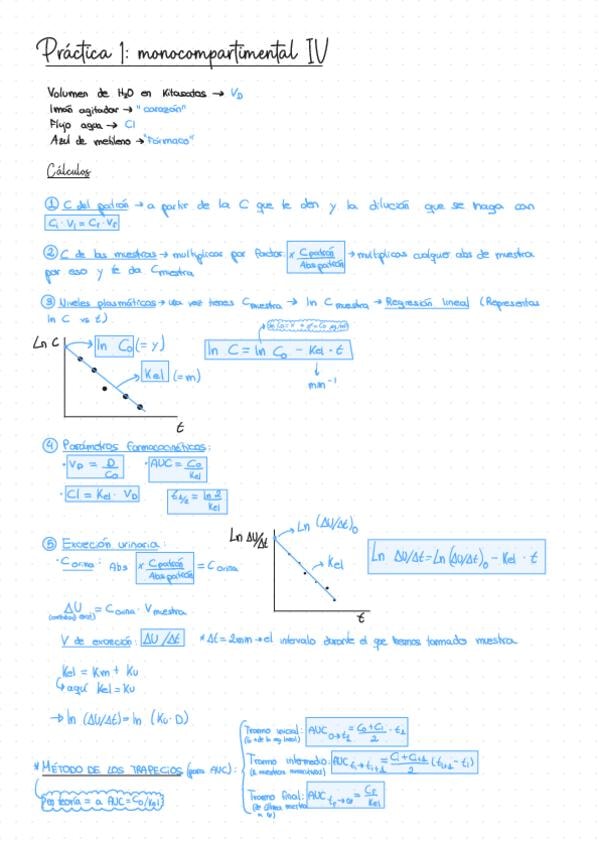 Práctica 1: monocompartimental IV
Volumen de H₂O en Kitasatos → VD
Imán agitador → "corazón"
Flujo agua → Cl
Azul de metileno → "Fármaco"
Cálculos
① C del patrón → a partir de la C que te den y la dilución que se haga con
Ci · Vi = Cf · Vf
② C de las muestras → multiplicas por factor: x C patrón / Abs patrón → multiplicas cualquier abs de muestra
por eso y te da Cmuestra
③ Niveles plasmáticos → una vez tienes Cmuestra → ln Cmuestra → Regresión lineal (Representas
ln C vs t)
Ln C
ln C₀ (= y)
Kel (= m)
t
ln C = ln C₀ - Kel · t
min⁻¹
④ Parámetros farmacocinéticos:
· VD = D / C₀
· AUC = C₀ / Kel
· Cl = Kel · VD
t1/2 = ln 2 / Kel
⑤ Excreción urinaria:
· Corina: Abs x C patrón / Abs patrón = Corina
Ln ΔU/Δt
Ln (ΔU/Δt)₀
Kel
t
Ln ΔU/Δt = Ln (ΔU/Δt)₀ - Kel · t
ΔU = Corina · Vmuestra
V de excreción: ΔU/Δt * Δt = 2min → el intervalo durante el que hemos tomado muestra
Kel = Km + Ku
aquí Kel = Ku
→ ln (ΔU/Δt) = ln (Ku · D)
* MÉTODO DE LOS TRAPECIOS (para AUC):
Por teoría = a AUC = C₀/Kel
Tramo inicial: AUC 0→t1 = C₀ + C₁ / 2 · t1
Tramo intermedio: AUC ti→ti+1 = Ci + Ci+1 / 2 (ti+1 - ti)
Tramo final: AUC tf→∞ = Cf / Kel